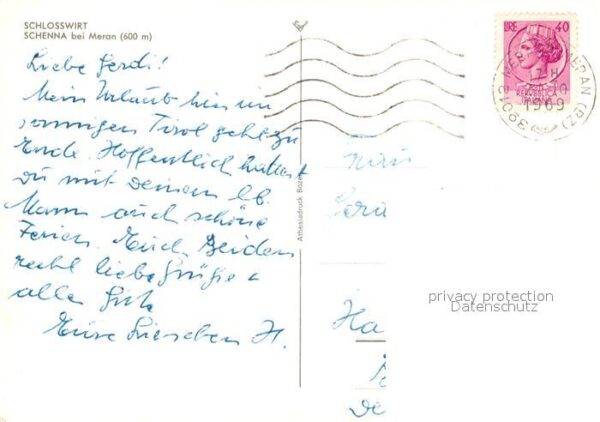 SCHLOSSWIRT
SCHENNA bei Meran (600 m)
Liebe Gerdi!
Mein Urlaub hier im
sonnigen Tirol geht zu
Ende. Hoffentlich hattest
Du mit Deinem lb.
Mann auch schöne
Ferien. Euch Beiden
recht liebe Grüße +
alles Gute
Eure Lieschen H.
Athesiadruck Bozen
LIRE 40
REPUBBLICA
ITALIANA
MERAN (BZ)
1969
39012
Frau
Gerd
Ha
De
privacy protection
Datenschutz